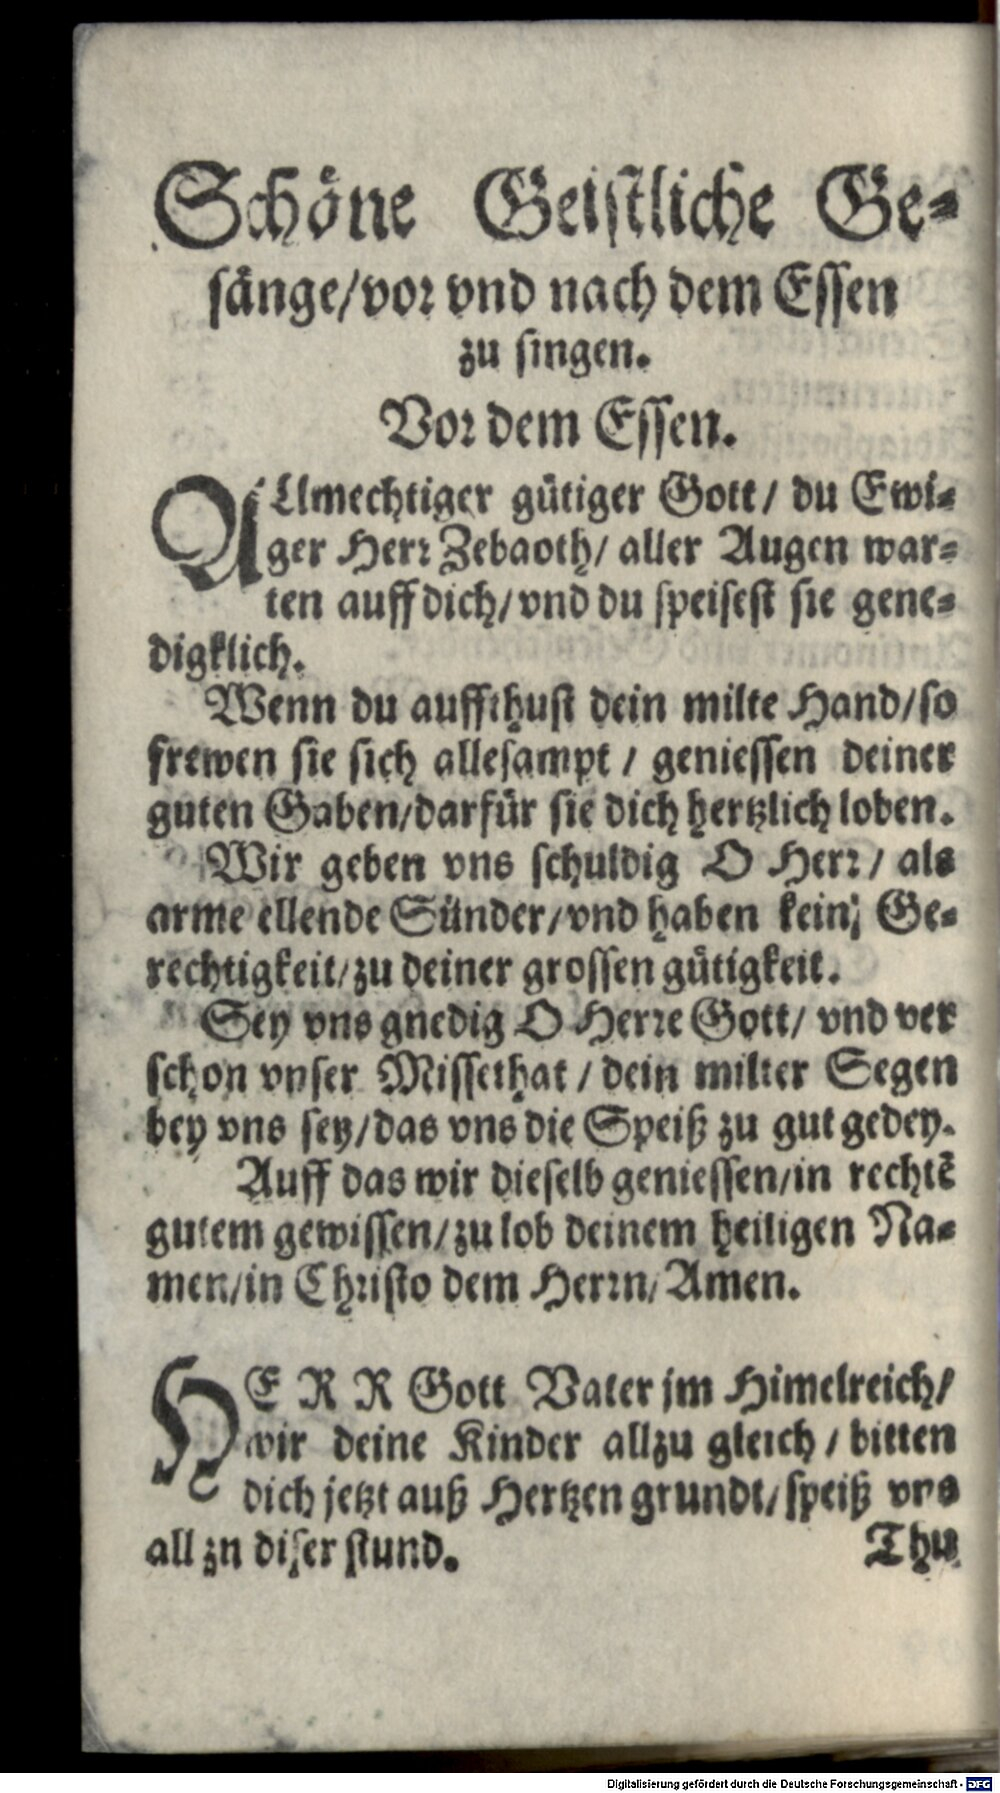 Schöne Geistliche Ge-
sänge/vor vnd nach dem Essen
zu singen.
Vor dem Essen.
ALlmechtiger gütiger Gott/ du Ewi-
ger Herr Zebaoth/ aller Augen war-
ten auff dich/vnd du speisest sie gene-
digklich.
Wenn du auffthust dein milte Hand/so
frewen sie sich allesampt / geniessen deiner
guten Gaben/darfür sie dich hertzlich loben.
Wir geben vns schuldig O Herr/ als
arme ellende Sünder/vnd haben kein; Ge-
rechtigkeit/zu deiner grossen gütigkeit.
Sey vns gnedig O Herre Gott/ vnd ver
schon vnser Missethat / dein milter Segen
bey vns sey/das vns die Speiß zu gut gedey.
Auff das wir dieselb geniessen/in rechtē
gutem gewissen/zu lob deinem heiligen Na-
men/in Christo dem Herrn/Amen.
HERR Gott Vater jm Himelreich/
wir deine Kinder allzu gleich / bitten
dich jetzt auß Hertzen grundt/speiß vns
all zn diser stund.
Thu
Digitalisierung gefördert durch die Deutsche Forschungsgemeinschaft - DFG